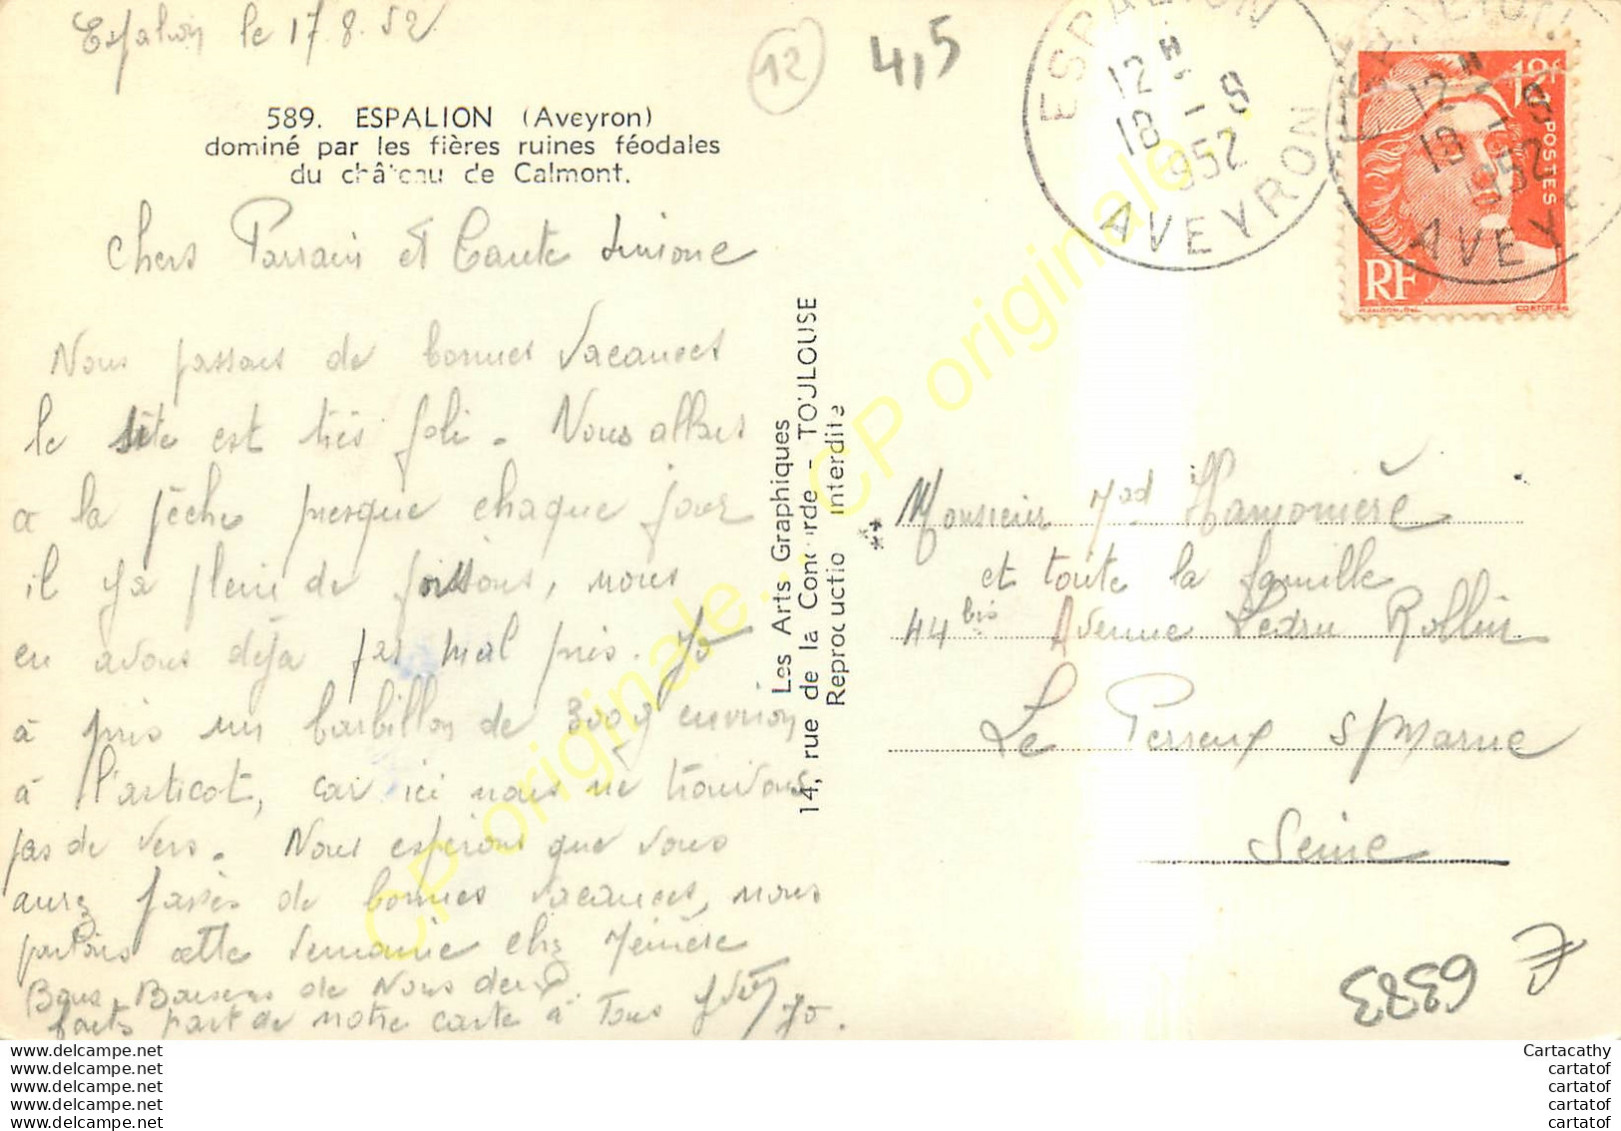 Espalion le 17.8.52
12
4,5
589. ESPALION (Aveyron)
dominé par les fières ruines féodales
du château de Calmont.
Chers Parrain et Tante Simone
Nous passons de bonnes vacances
le site est très joli. Nous allons
a la pêche presque chaque jour
il y a plein de poissons, nous
en avons déja pas mal pris. Jo
à pris un barbillon de 300g environ
à l'asticot, car ici nous ne trouvons
pas de vers. Nous espérons que vous
aurez passés de bonnes vacances, nous
partons cette semaine chez
Bons Baisers de Nous deux
faits part de notre carte à Tous Jo.
Les Arts Graphiques
14, rue de la Concorde - TOULOUSE
Reproductio interdite
ESPALION
12 H
18 - 8
1952
AVEYRON
12 H
18 - 8
1952
AVEY
12f
POSTES
RF
GANDON.DEL.
CORTOT.SC.
Monsieur Mad Hamonière
et toute la famille
44 bis Avenue Ledru Rollin
Le Perreux s/Marne
Seine
6383
CP originale... CP originale...
www.delcampe.net
www.delcampe.net
www.delcampe.net
www.delcampe.net
www.delcampe.net
Cartacathy
cartatof
cartatof
cartatof
cartatof